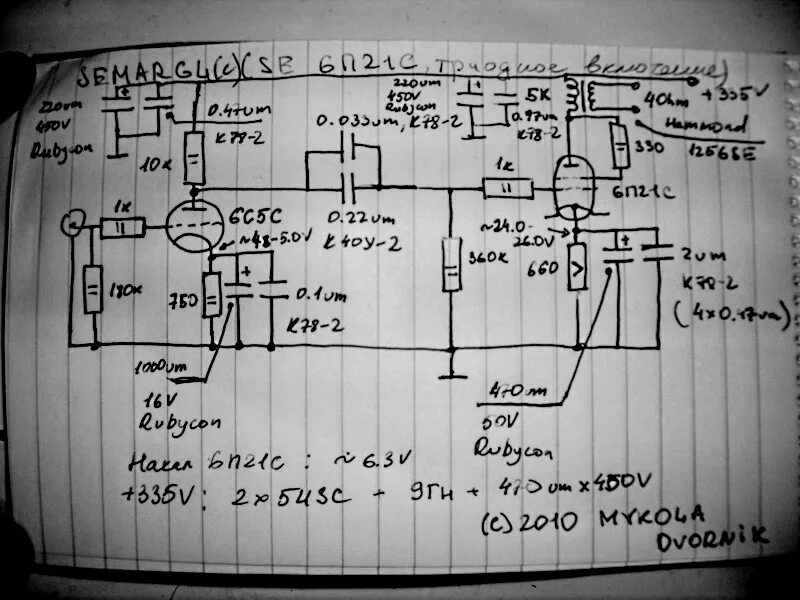 SEMARGL(c)(SE 6П21С, триодное включение)
220um
450V
Rubycon
0.47um
K78-2
10k
0.033um, K78-2
220um
450V
Rubycon
5K
0.47um
K78-2
4Ohm
+335V
Hammond
125GSE
330
1k
6C5C
~4.8-5.0V
0.22um
K40У-2
1k
6П21С
~24.0-
26.0V
180k
750
0.1um
K78-2
360k
660
2um
K78-2
(4x0.47um)
1000um
16V
Rubycon
470um
50V
Rubycon
Накал 6П21С : ~6.3V
+335V: 2x5Ц3С + 9Гн + 470um x 450V
(c) 2010 MYKOLA
DVORNIK